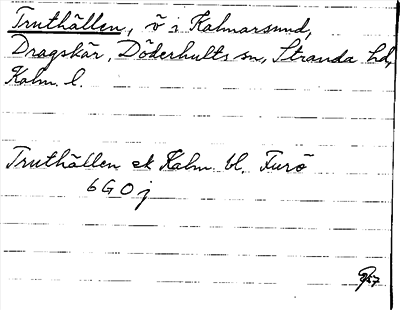 Truthällen, ö i Kalmarsund,
Dragskär, Döderhults sn, Stranda hd,
Kalm. l.
Truthällen ek Kalm. bl. Furö
6G0j